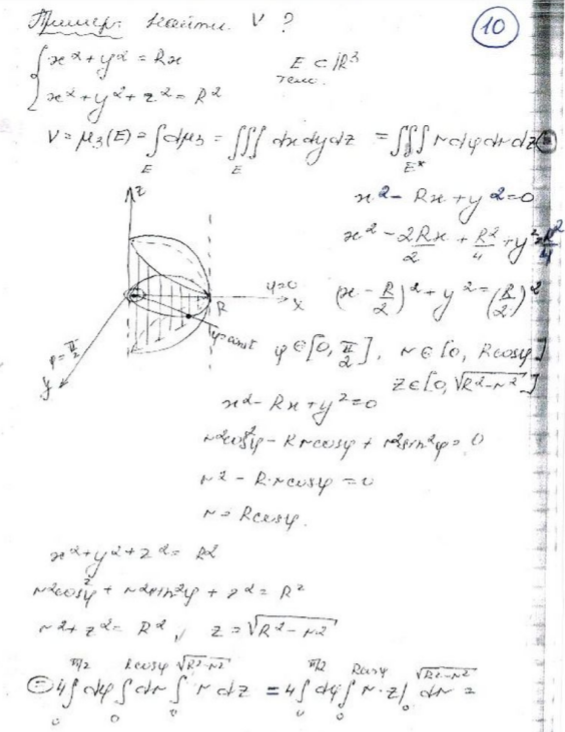 Пример: Найти V ?
10
{ x² + y² = Rx
E ⊂ ℝ³
тело.
x² + y² + z² = R²
V = μ₃(E) = ∫_E dμ₃ = ∭_E dxdydz = ∭_E* r dφ dr dz =
x² - Rx + y² = 0
x² - 2Rx/2 + R²/4 + y² = R²/4
(x - R/2)² + y² = (R/2)²
z
φ=0
R
x
φ=const
φ=π/2
y
φ ∈ [0, π/2], r ∈ [0, Rcosφ]
z ∈ [0, √(R²-r²)]
x² - Rx + y² = 0
r²cos²φ - Rrcosφ + r²sin²φ = 0
r² - R·rcosφ = 0
r = Rcosφ.
x² + y² + z² = R²
r²cos²φ + r²sin²φ + z² = R²
r² + z² = R², z = √(R²-r²)
= 4∫₀^(π/2) dφ ∫₀^(Rcosφ) dr ∫₀^(√(R²-r²)) r dz = 4∫₀^(π/2) dφ ∫₀^(Rcosφ) r·z|₀^(√(R²-r²)) dr =